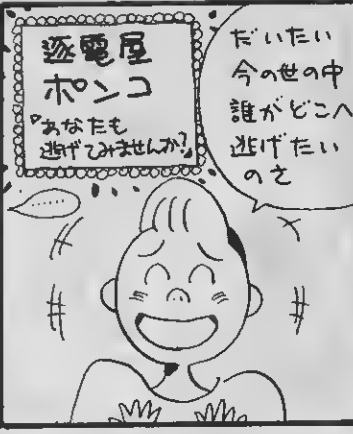 逐電屋
ポンコ
『あなたも
逃げてみませんか?』
だいたい
今の世の中
誰がどこへ
逃げたい
のさ
……